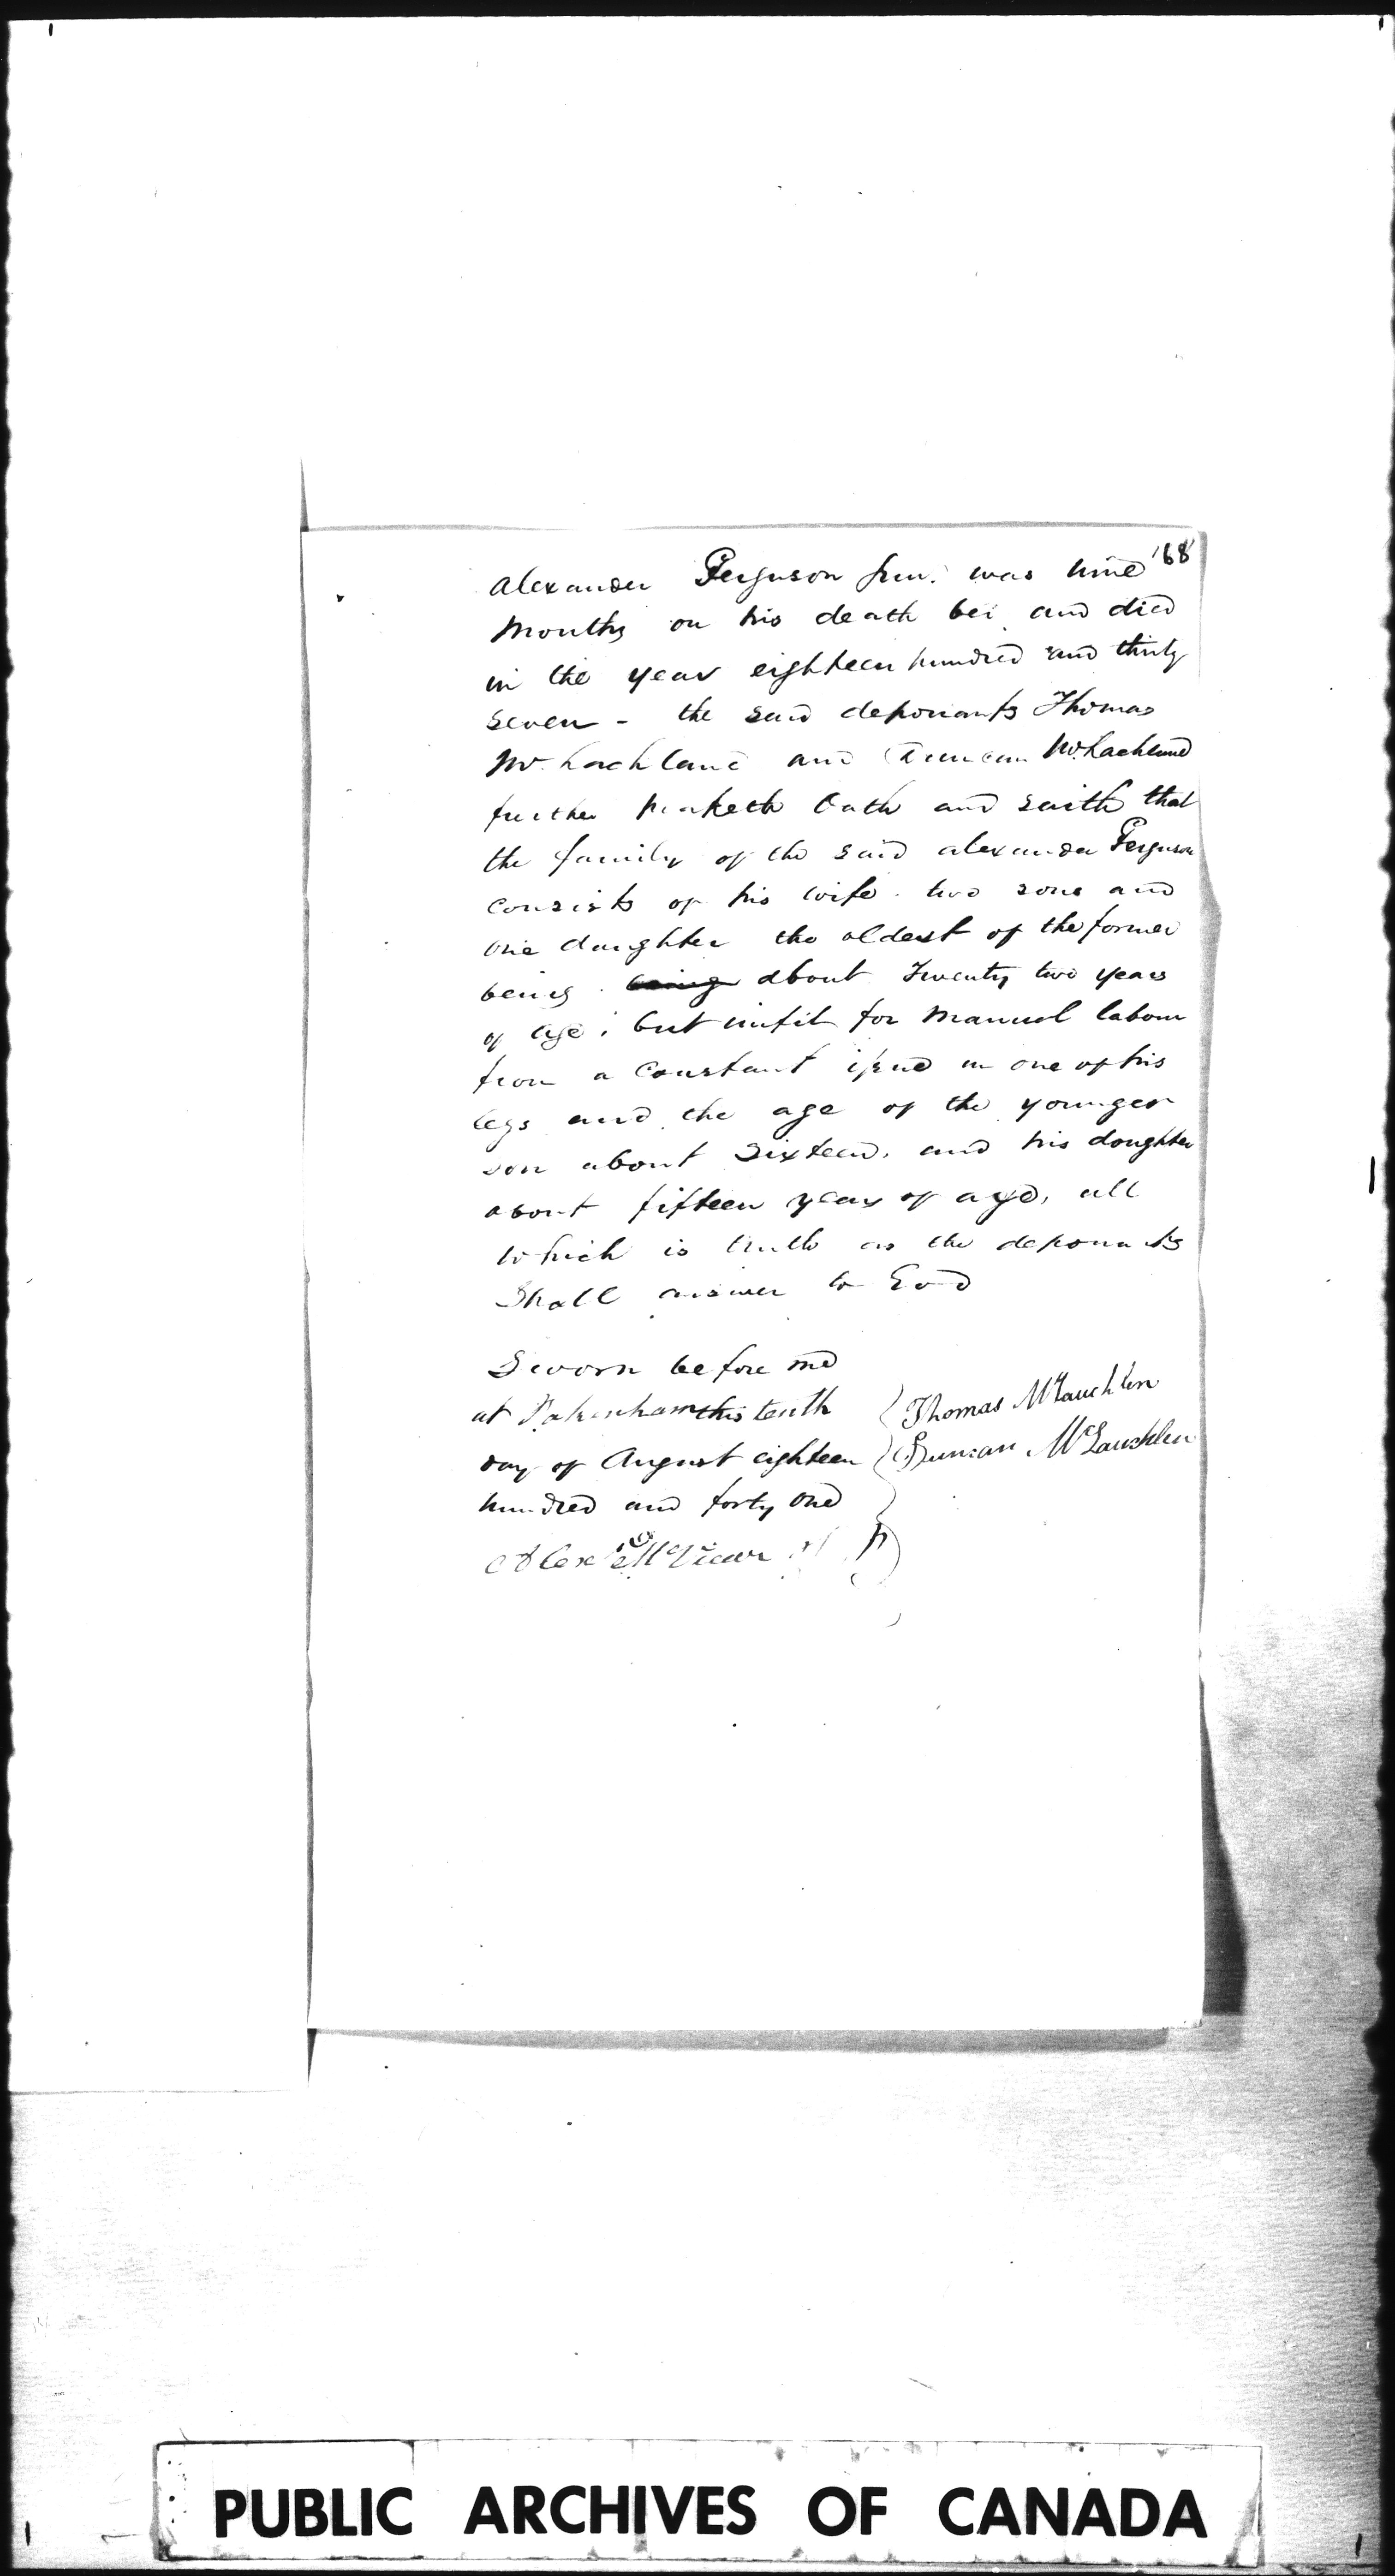 168
Alexander Ferguson Jun. was nine
months on his death bed and died
in the year eighteen hundred and thirty
seven - the said deponants Thomas
Mc.Lachlane and Duncan Mc.Lachland
further maketh Oath and saith that
the family of the said alexander Ferguson
consists of his wife two sons and
one daughter the oldest of the former
being being about Twenty two years
of age; but unfit for manual labour
from a constant issue in one of his
legs and the age of the younger
son about Sixteen, and his doughter
about fifteen years of age, all
which is truth as the deponants
Shall answer to God
Sworn before me
at Pakenham this tenth
day of August eighteen
hundred and forty one
Thomas McLauchlin
Duncan McLauchlin
Alexr McVicar JP
PUBLIC ARCHIVES OF CANADA